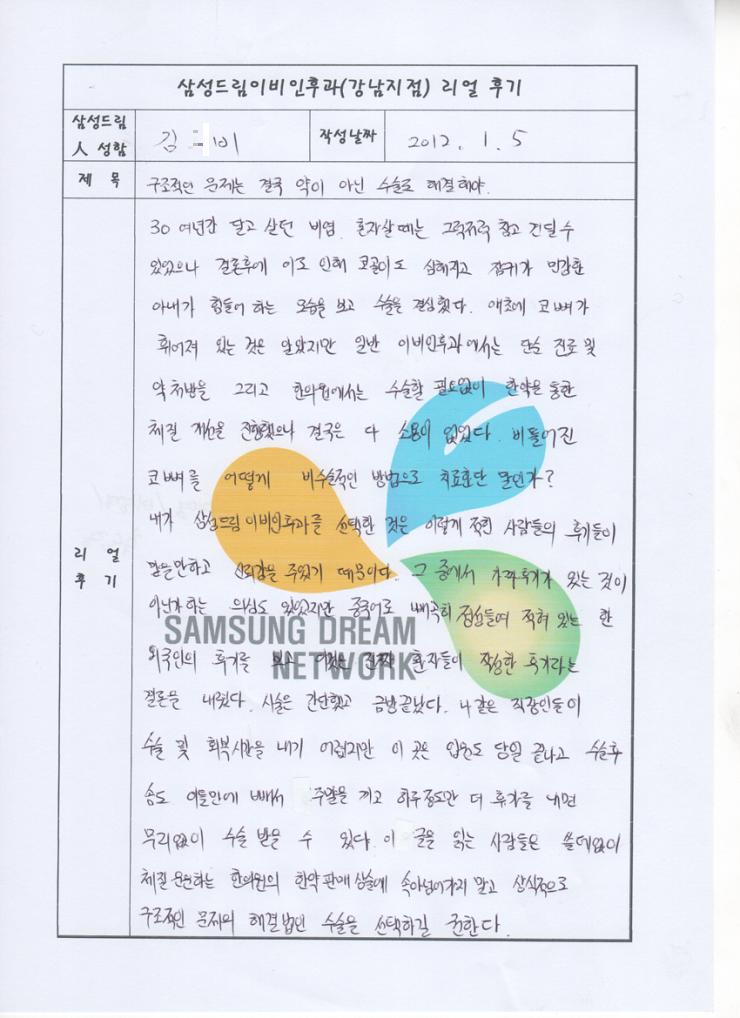 삼성드림이비인후과(강남지점) 리얼 후기
삼성드림
人 성함
김 비
작성날짜
2012. 1. 5
제 목
구조적인 문제는 결국 약이 아닌 수술로 해결해야.
리 얼
후 기
30 여년간 달고 살던 비염. 혼자살 때는 그럭저럭 참고 견딜 수
있었으나 결혼후에 이로 인해 코골이도 심해지고 잠귀가 민감한
아내가 힘들어 하는 모습을 보고 수술을 결심했다. 애초에 코뼈가
휘어져 있는 것은 알았지만 일반 이비인후과에서는 단순 진료 및
약처방을 그리고 한의원에서는 수술할 필요없이 한약을 통한
체질 개선을 진행했으나 결국은 다 소용이 없었다. 비틀어진
코뼈를 어떻게 비수술적인 방법으로 치료한단 말인가?
내가 삼성드림이비인후과를 선택한 것은 이렇게 적힌 사람들의 후기들이
신뢰감을 주었기 때문이다. 그 중에서 가짜후기가 있는 것이
아닌가 하는 의심도 있었지만 중국어로 빼곡히 정성들여 적혀 있는 한
외국인의 후기를 보고 이것은 진짜 환자들이 작성한 후기라는
결론을 내렸다. 시술은 간단했고 금방끝났다. 나같은 직장인들이
수술 및 회복시간을 내기 어렵지만 이 곳은 입원도 당일 끝나고 수술후
솜도 이틀만에 빼서 주말을 끼고 하루정도만 더 휴가를 내면
무리없이 수술 받을 수 있다. 이 글을 읽는 사람들은 쓸데없이
체질 운운하는 한의원의 한약 판매 상술에 속아넘어가지 말고 상식적으로
구조적인 문제의 해결법인 수술을 선택하길 권한다.
SAMSUNG DREAM
NETWORK